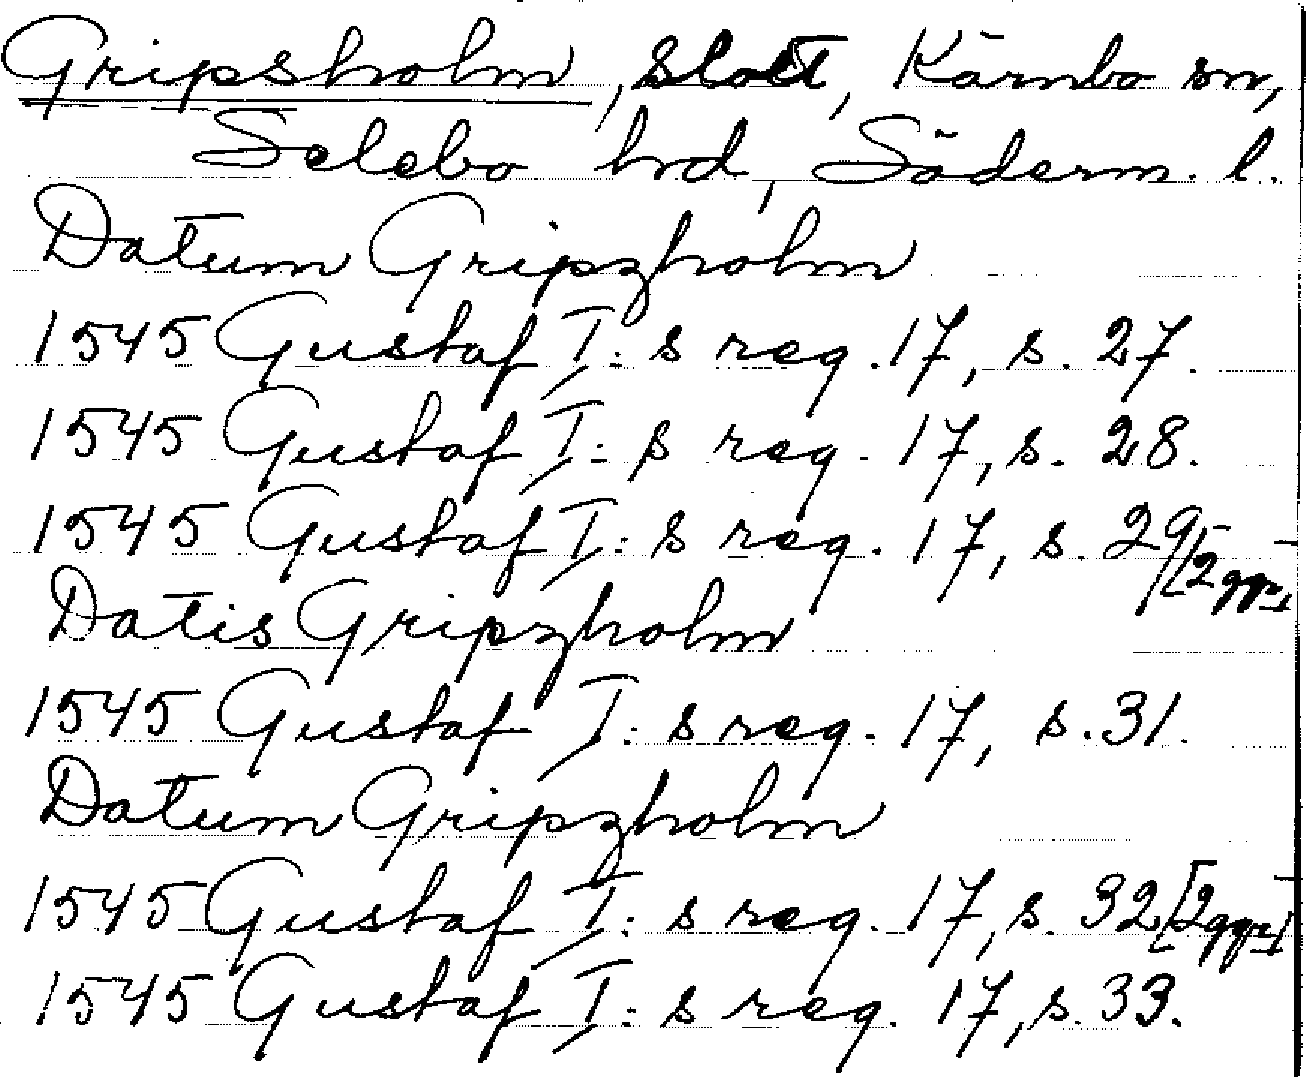 Gripsholm, slott, Kärnbo sn,
Selebo hrd, Söderm. l.
Datum Gripzholm
1545 Gustaf I:s reg. 17, s. 27.
1545 Gustaf I:s reg. 17, s. 28.
1545 Gustaf I:s reg. 17, s. 29 [2 ggr]
Datis Gripzholm
1545 Gustaf I:s reg. 17, s. 31.
Datum Gripzholm
1545 Gustaf I:s reg. 17, s. 32 [2 ggr]
1545 Gustaf I:s reg. 17, s. 33.